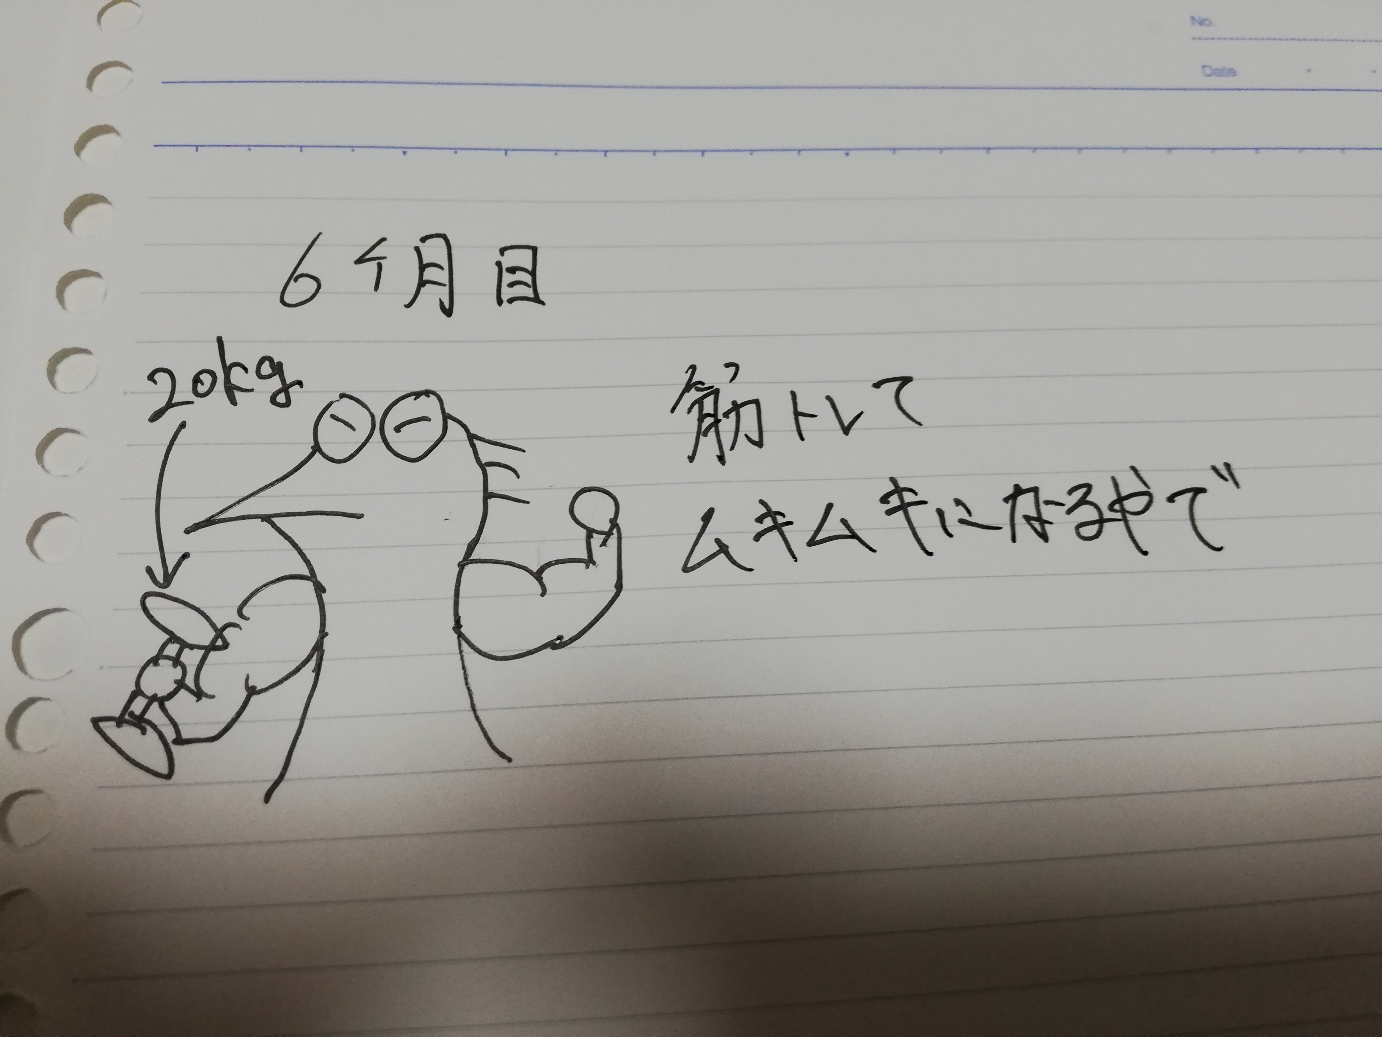 No.
Date
6ヶ月目
20kg
筋トレて
ムキムキになるやで